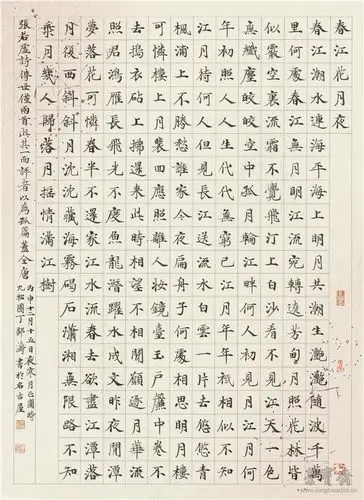 春江花月夜
春江潮水連海平海上明月共潮生灔灔隨波千萬
里何處春江無月明江流宛轉遶芳甸月照花林皆
似霰空裏流霜不覺飛汀上白沙看不見江天一色
無纖塵皎皎空中孤月輪江畔何人初見月江月何
年初照人人生代代無窮已江月年年祇相似不知
江月待何人但見長江送流水白雲一片去悠悠青
楓浦上不勝愁誰家今夜扁舟子何處相思明月樓
可憐樓上月裴回應照離人妝鏡臺玉戶簾中卷不
去搗衣砧上拂還來此時相望不相聞願逐月華流
照君鴻雁長飛光不度魚龍潛躍水成文昨夜閒潭
夢落花可憐春半不還家江水流春去欲盡江潭落
月復西斜斜月沈沈藏海霧碣石瀟湘無限路不知
乘月幾人歸落月搖情滿江樹
張若虛詩傳世僅兩首此其一而評者以為孤篇蓋全唐
丙申十二月十五日夜寒月色圓時
九松園丁鄒濤書於名古廬